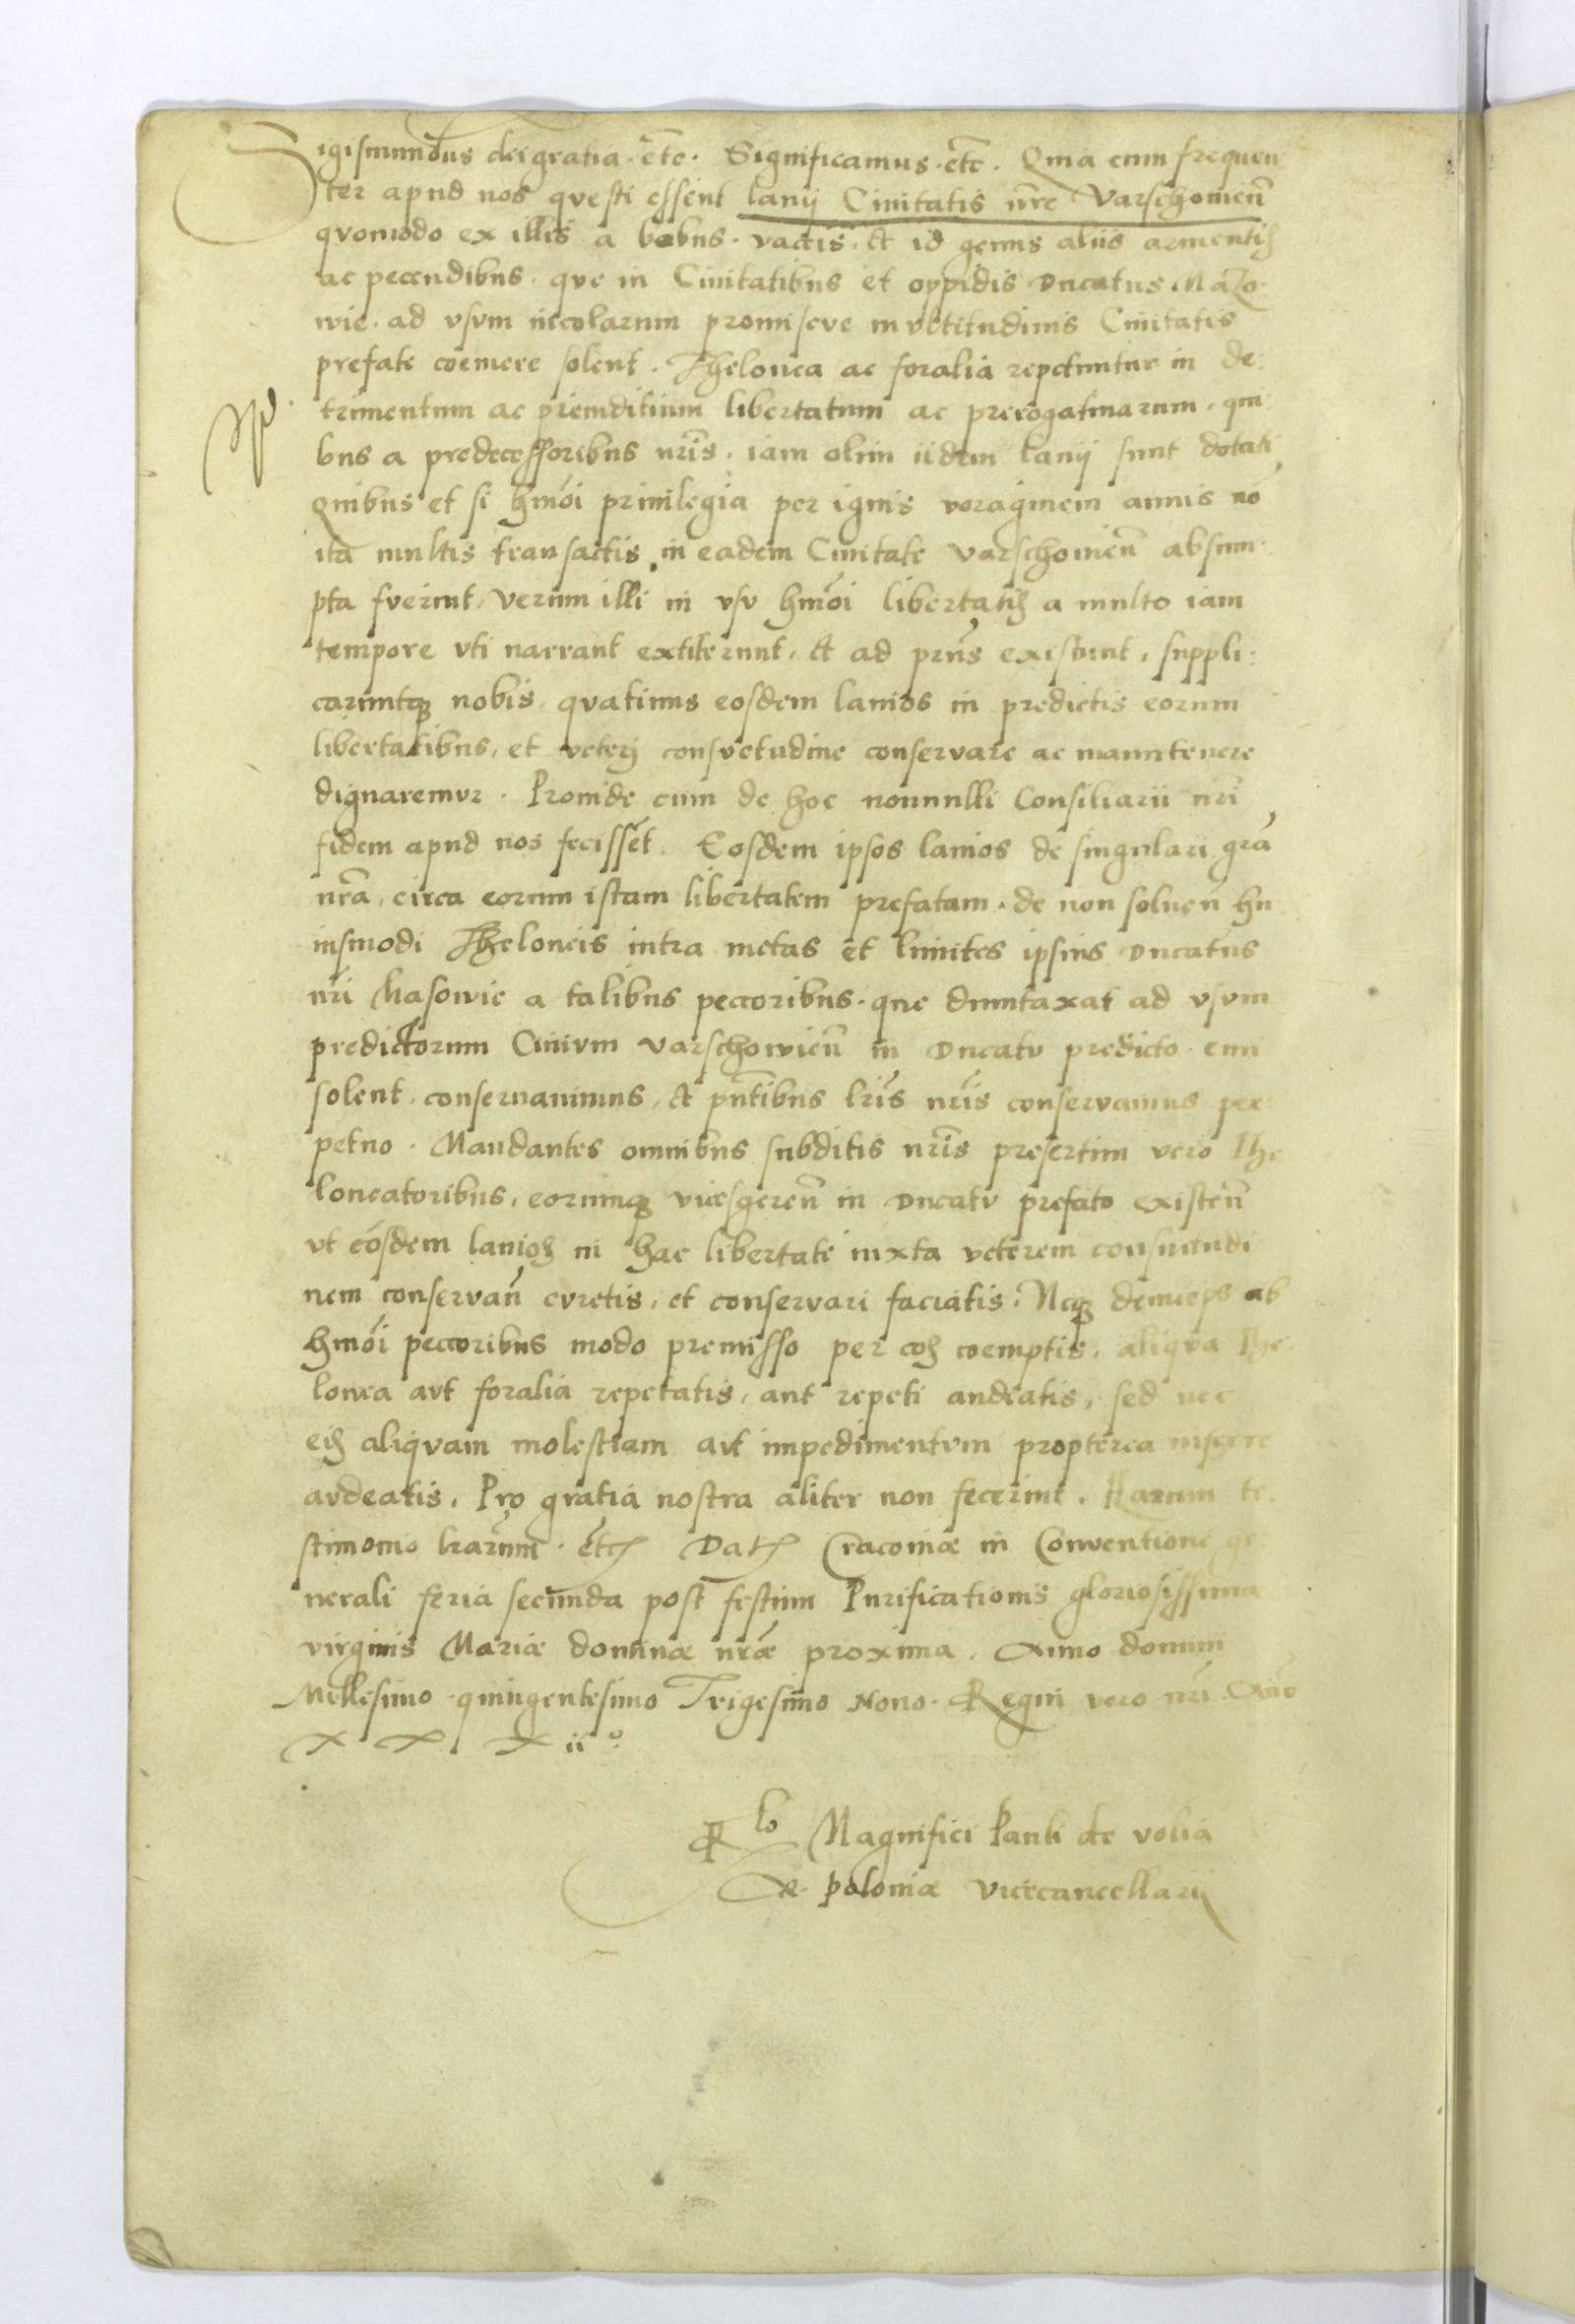 Sigismundus dei gratia etc̃. Significamus etc̃. Quia cum frequen
ter apud nos questi essent lanij Ciuitatis nr̃e Varschouien̄
quomodo ex illis a bobus, vaccis, et id genus aliis armentis
ac pecudibus que in Ciuitatibus et oppidis Ducatus Mazo
wie ad vsvm incolarum promiscve mvltitudinis Ciuitatis
prefate coemere solent. Thelonea ac foralia repetuntur in de
trimentum ac preiuditium libertatum ac prerogatiuarum, qui
bus a predecessoribus nr̃is, iam olim iidem lanij sunt dotati
Quibus et si hmõi priuilegia per ignis voraginem annis nõ
ita multis transactis in eadem Ciuitate Varschouien̄ absum
pta fverint, verum illi in vsv hmõi libertatis a multo iam
tempore vti narrant extiterunt, et ad pr̃ns existunt, suppli
caruntq nobis, quatinus eosdem lanios in predictis eorum
libertatibus, et veterj consvetudine conservare ac manutenere
dignaremvr. Proinde cum de hoc nonnulli Consiliarii nr̃i
fidem apud nos fecissẽt. Eosdem ipsos lanios de singulari gr̃a
nr̃a, circa eorum istam libertatem prefatam, de non soluen̄ hu
iusmodi Theloneis intra metas et limites ipsius Ducatus
nr̃i Masowie a talibus peccoribus, que duntaxat ad vsvm
predictorum Ciuivm Varschowien̄ in Ducatv predicto emi
solent, conseruauimus, et pñtibus lr̃is nr̃is conservamus per
petuo. Mandantes omnibus subditis nr̃is presertim vero The
loneatoribus, eorumq vicesgeren̄ in Ducatv prefato existen̄
vt eosdem lanios in hac libertate iuxta veterem consuetudi
nem conservan̄ cvretis, et conservari faciatis. Neq deinceps ab
hmõi peccoribus modo premisso per eos coemptis, aliqva The
lonea avt foralia repetatis, aut repeti audeatis, sed nec
eis aliqvam molestiam avt impedimentvm propterea inferre
avdeatis. Pro gratia nostra aliter non fecerint. Harum te
stimonio lr̃arum etc̃ Dat̃ Cracouiæ in Conventione ge
nerali feria secunda post festum Purificationis gloriosissima
virginis Mariæ dominæ nr̃æ proxima. Anno domini
Millesimo quingentesimo Trigesimo Nono. Regni vero nr̃i Anno
X X X iiº
Rlo Magnifici Pauli de volia
R. poloniæ Vicecancellarij